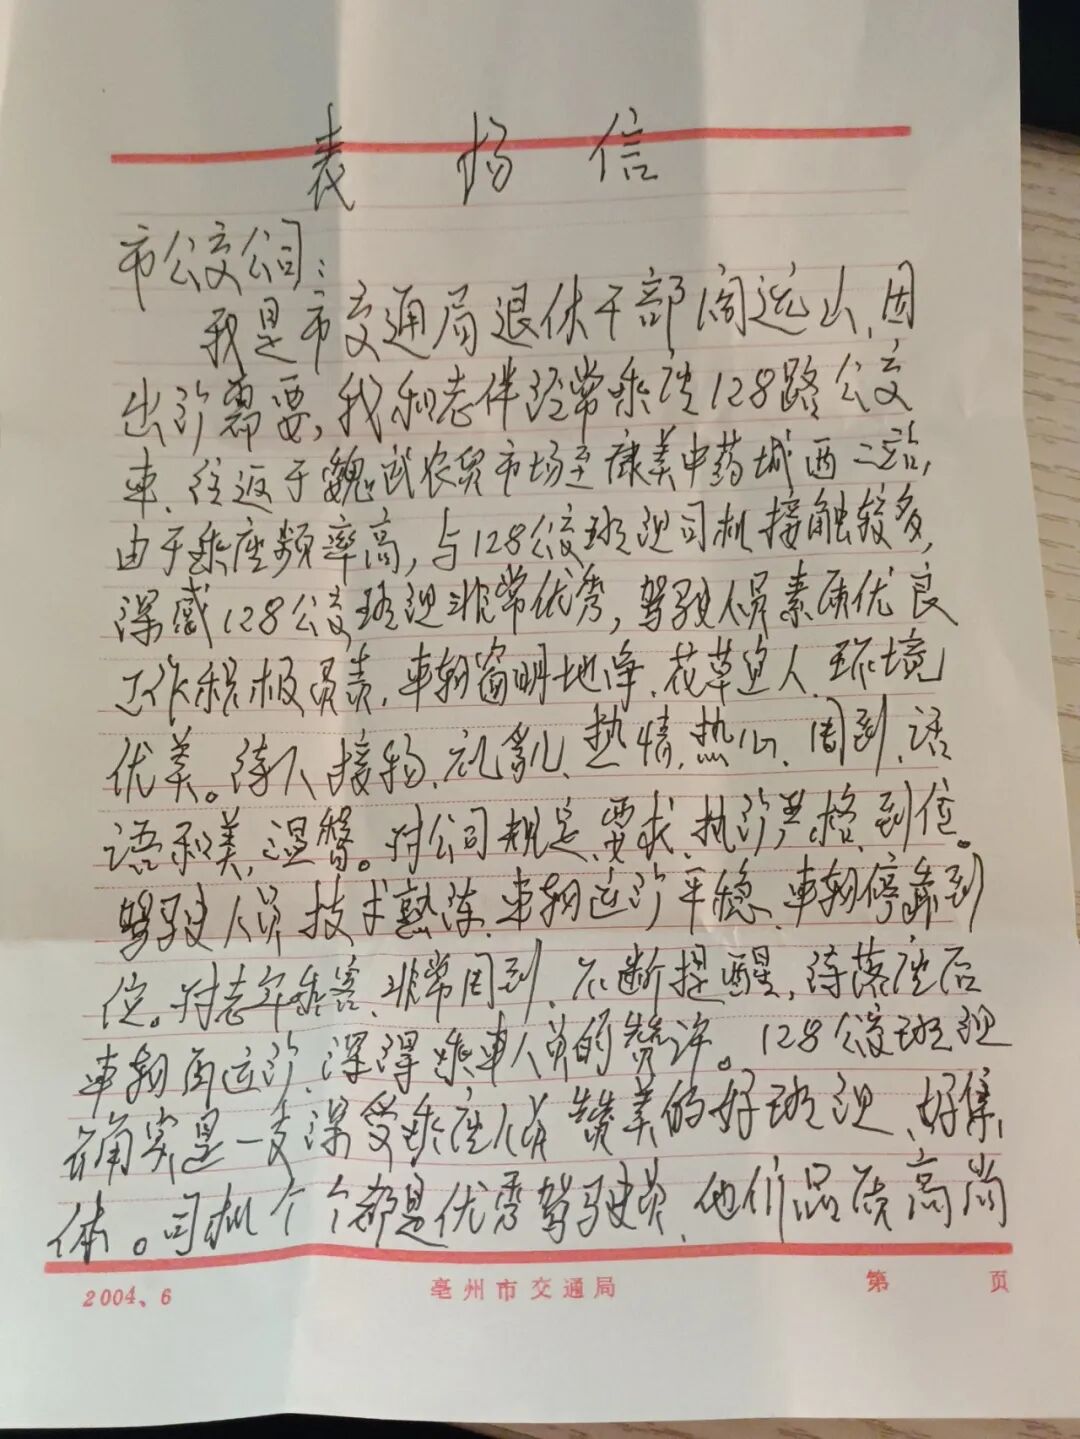 表扬信
市公交公司：
我是市交通局退休干部阎远山、因
出行需要，我和老伴经常乘坐128路公交
车、往返于魏武农贸市场至康美中药城西二站，
由于乘座频率高，与128公交班组司机接触较多，
深感128公交班组非常优秀，驾驶人员素质优良
工作积极负责，车辆窗明地净、花草宜人、环境
优美。待人接物、礼貌、热情、热心、周到、话
语和美，温馨。对公司规定、要求、执行严格、到位。
驾驶人员技术熟练、车辆运行平稳、车辆停靠到
位。对老年乘客、非常周到、不断提醒，待落座后
车辆再运行、深得乘车人员的赞许。128公交班组
确实是一支深受乘座人员赞美的好班组、好集
体。司机个个都是优秀驾驶员、他们品质高尚
2004、6 亳州市交通局 第 页